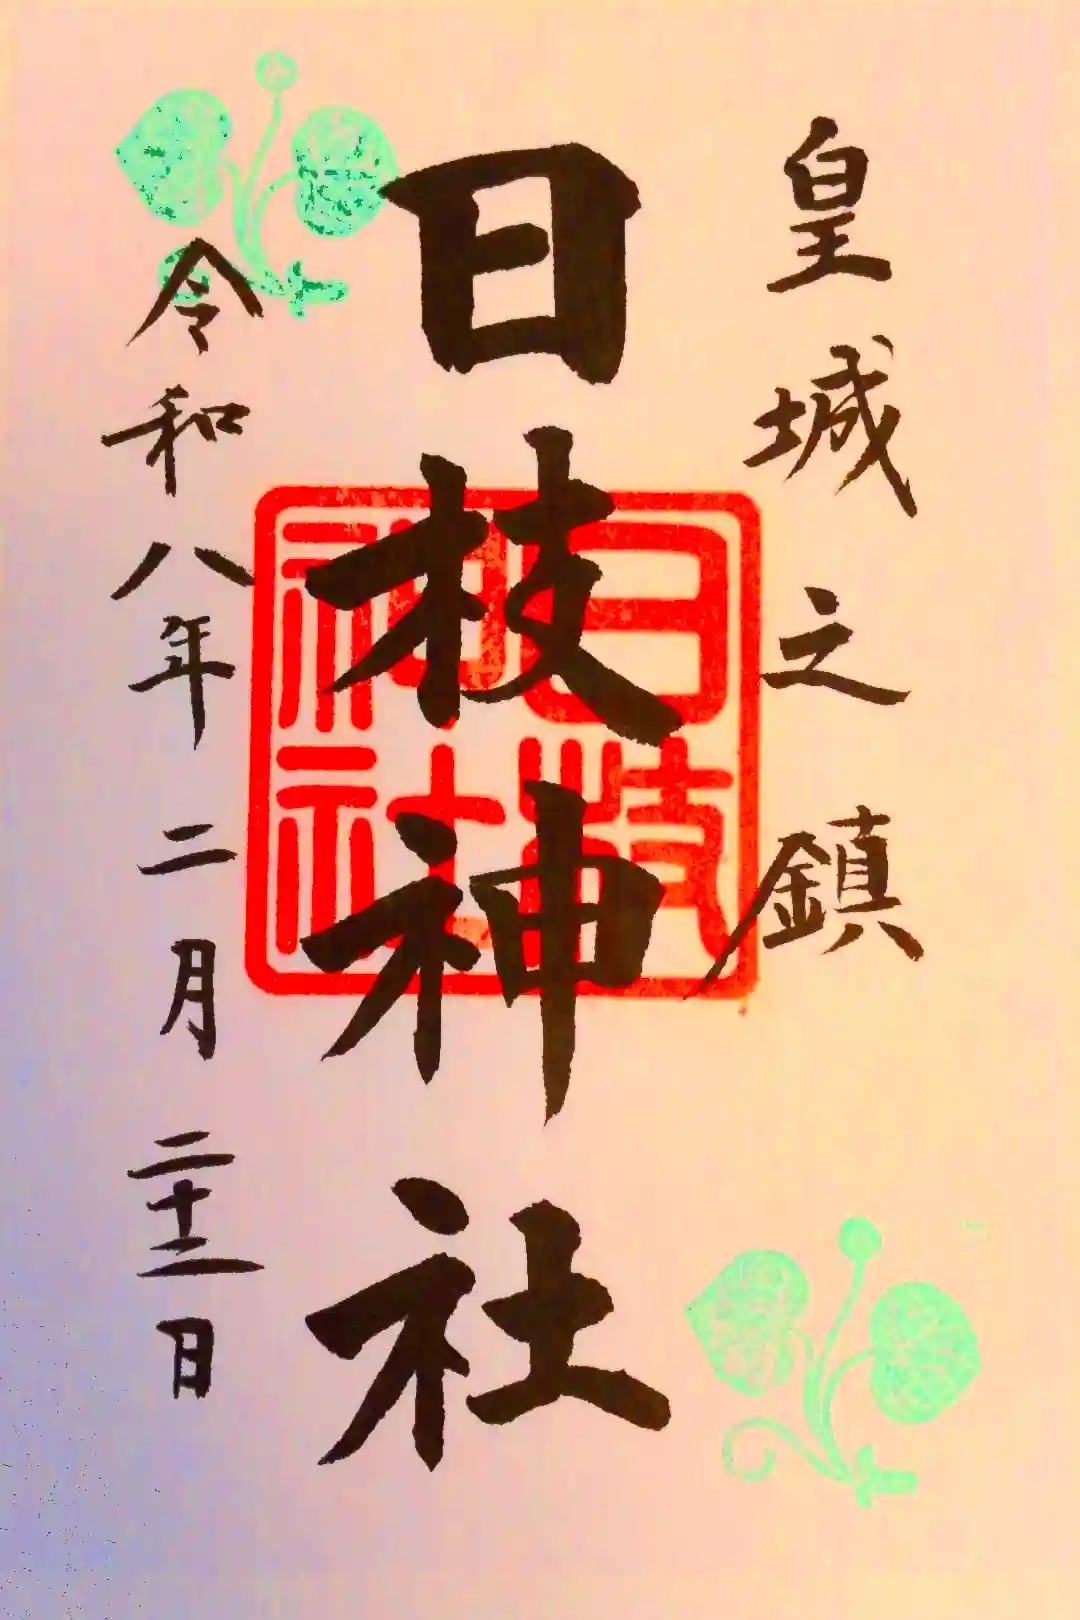 皇城之鎮
日枝神社
令和八年二月二十二日
日枝
神社